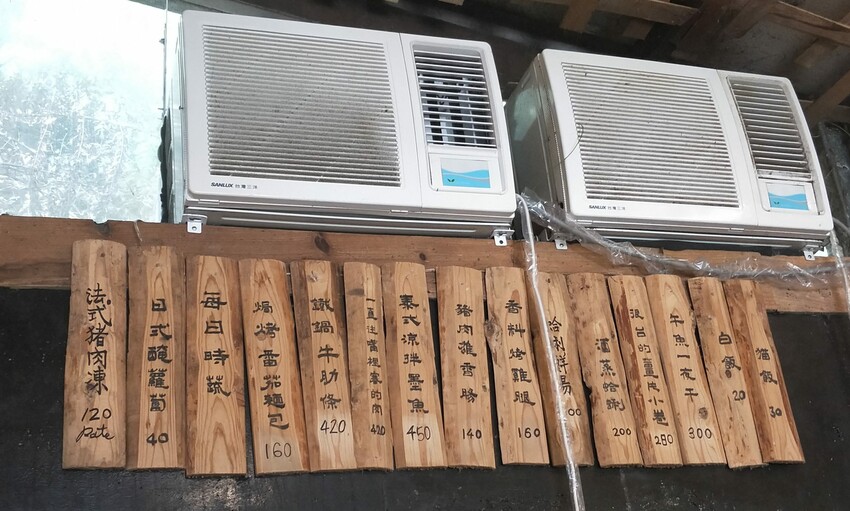 SANLUX 台灣三洋
SANLUX 台灣三洋
法式豬肉凍
120
Pate
日式醃蘿蔔
40
每日時蔬
焗烤番茄麵包
160
鐵鍋牛肋條
420
一直往嘴裡塞的肉
420
泰式涼拌墨魚
450
豬肉雜香腸
140
香料烤雞腿
160
00
酒蒸蛤蜊
200
很台的薑皮小卷
280
午魚一夜干
300
白飯
20
貓飯
30